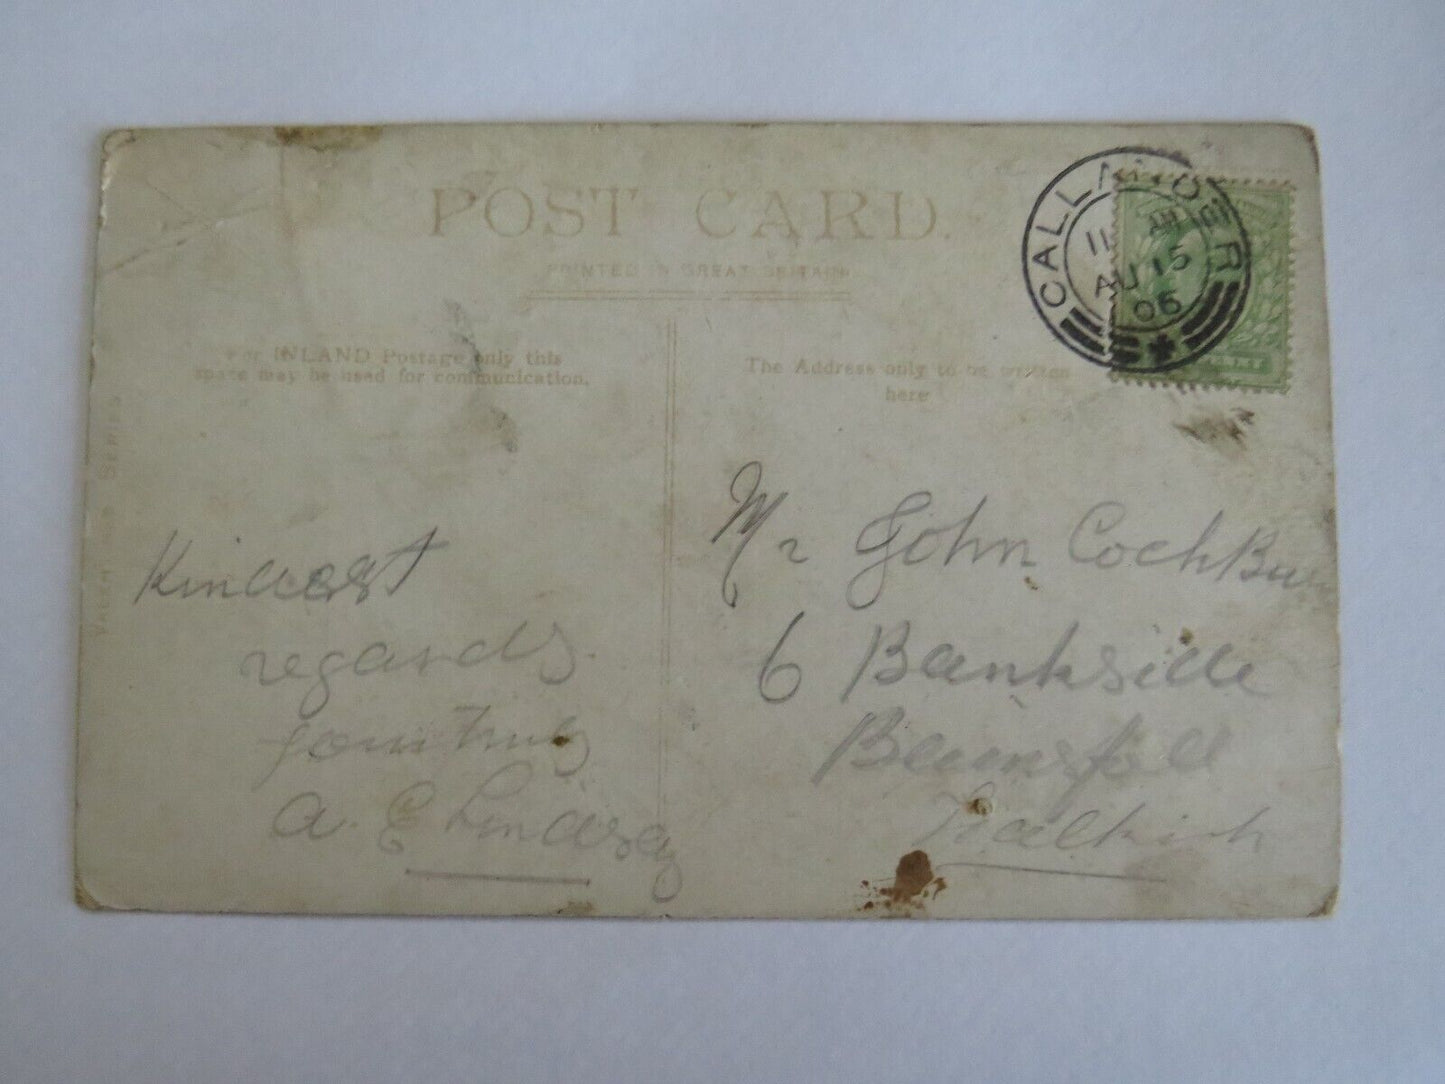 POST CARD.
PRINTED IN GREAT BRITAIN
For INLAND Postage only this
space may be used for communication.
The Address only to be written
here
CALLANDER
11 AM
AU 15
06
SERIES
Kindest
regards.
yours truly
A. E Lindsay
Mr John CochBurn
6 Bankside
Bainsford
Falkirk